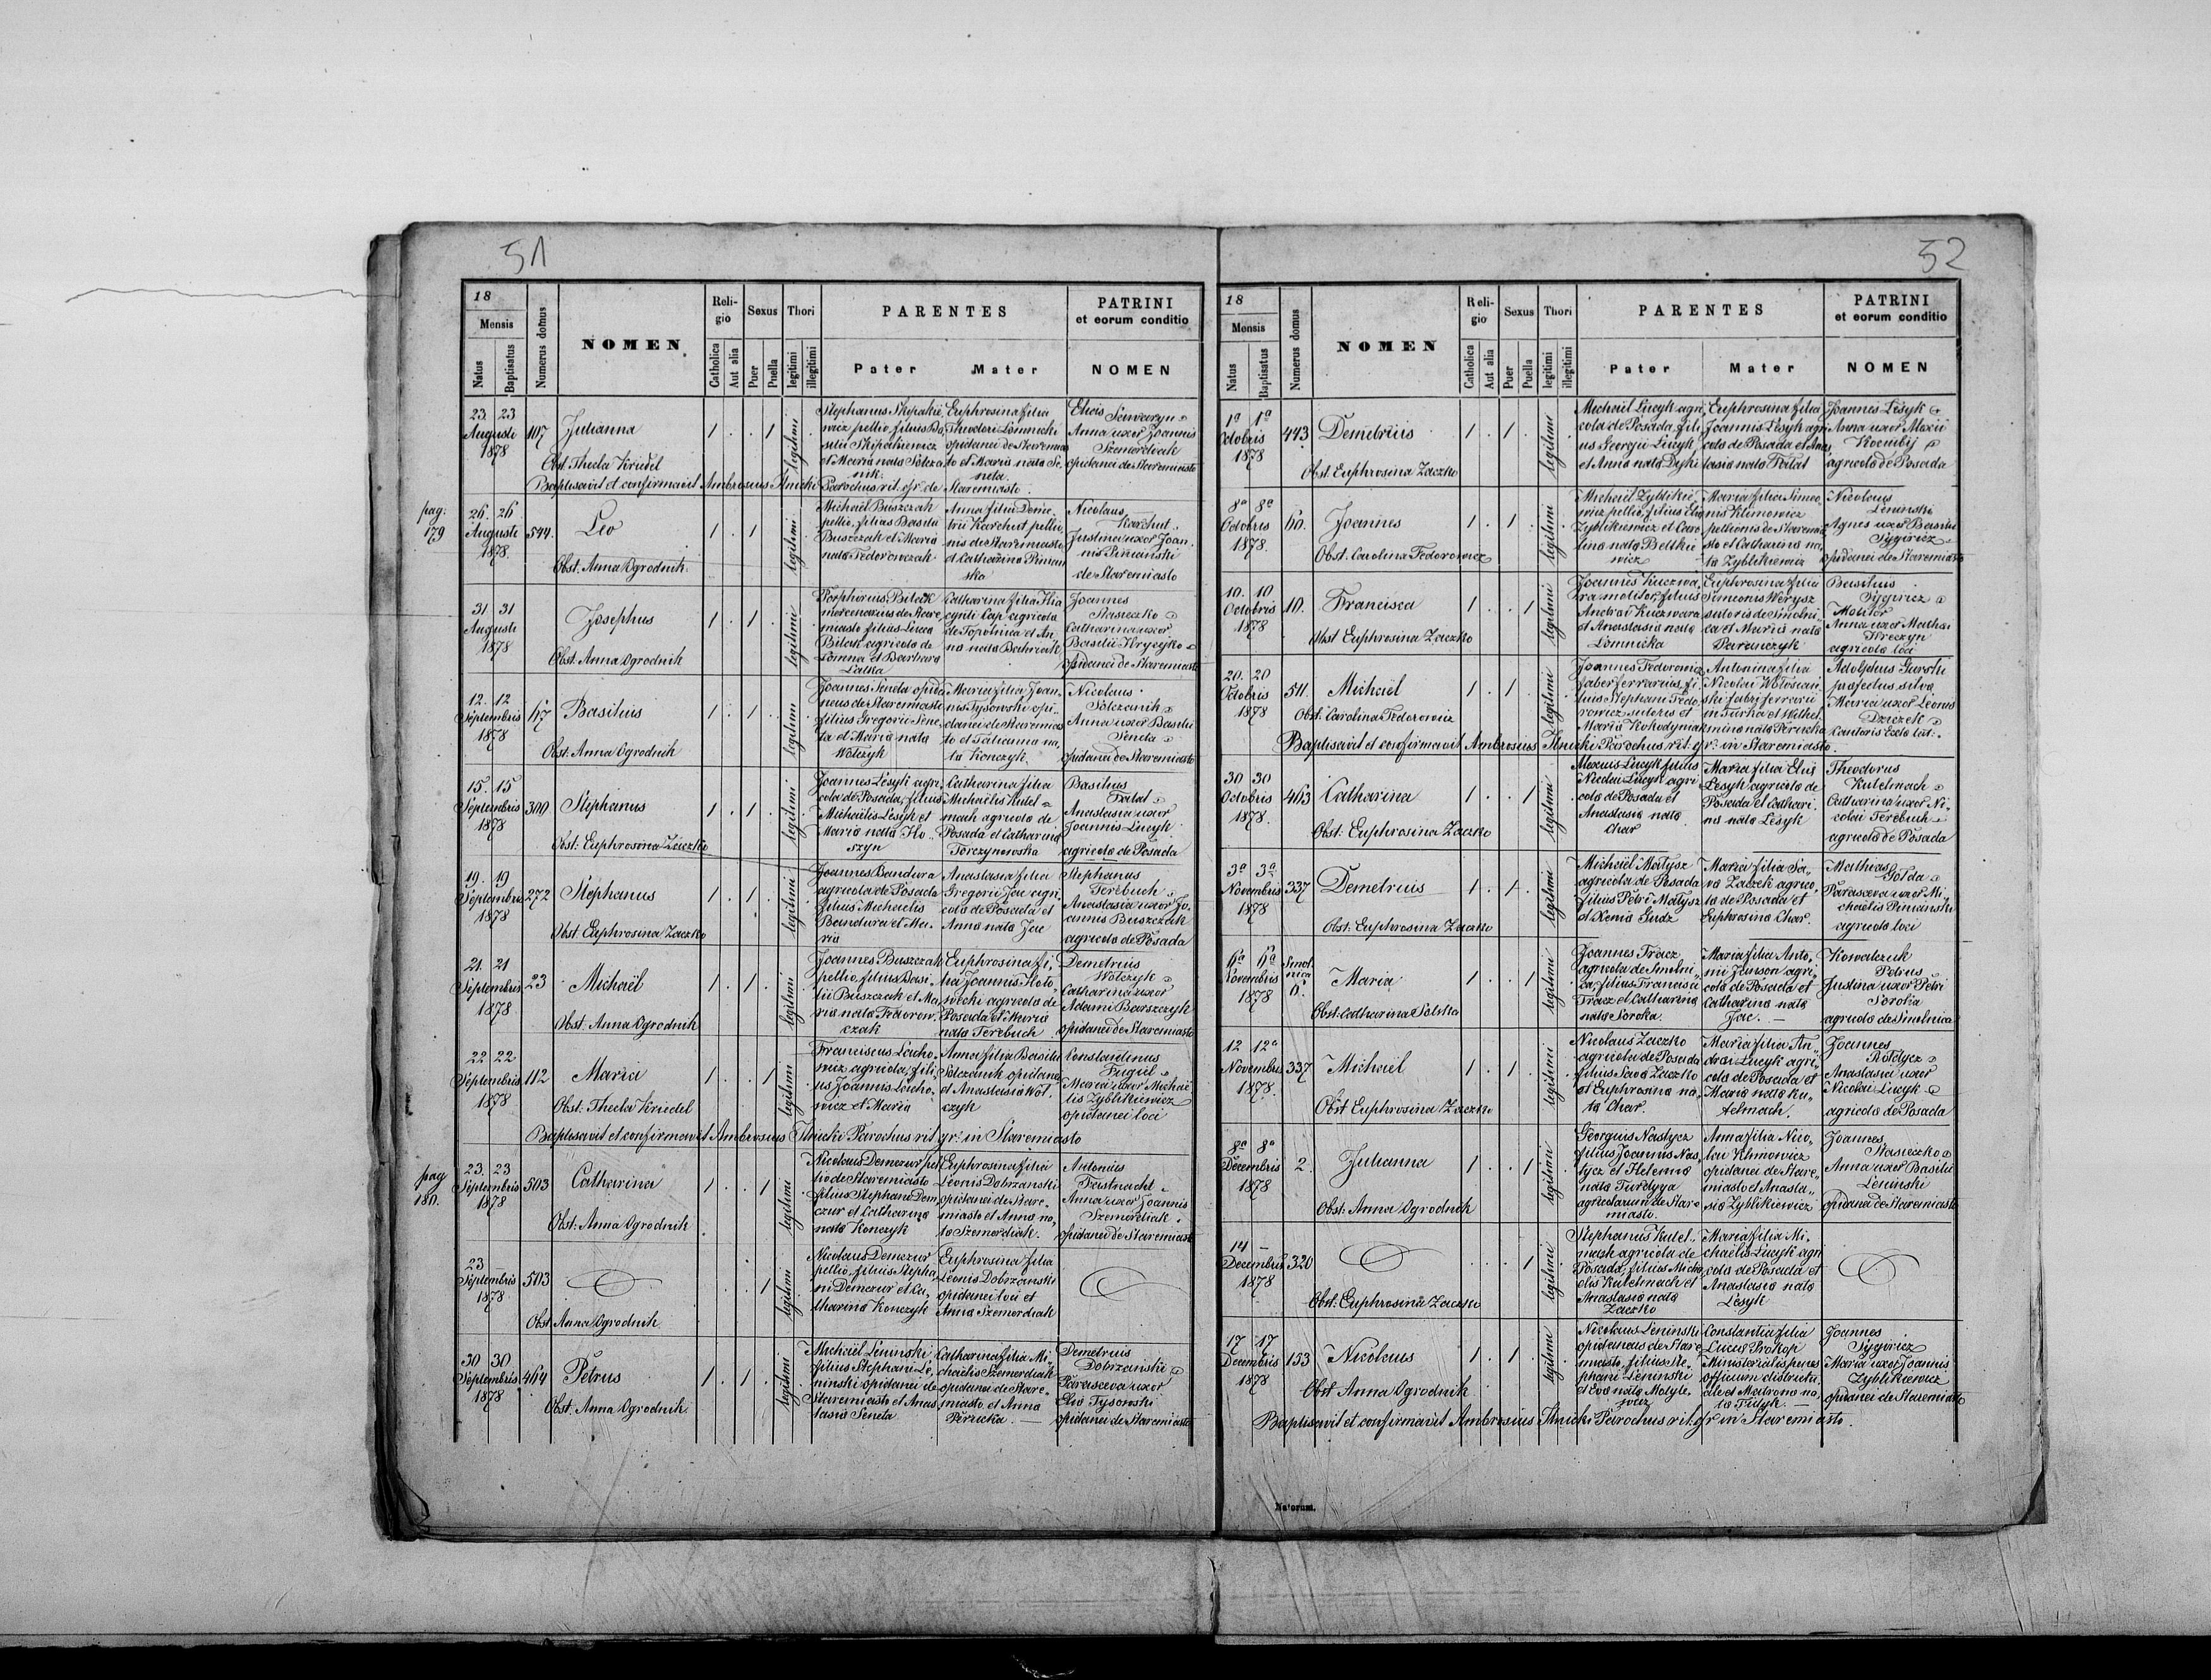 51
18
Mensis
Natus
Baptisatus
Numerus domus
NOMEN
Religio
Catholica
Aut alia
Sexus
Puer
Puella
Thori
legitimi
illegitimi
PARENTES
Pater
Mater
PATRINI
et eorum conditio
NOMEN
23. 23
Augusti
1878
107
Julianna
Obst. Thecla Kriedel
legitimi
Stephanus Skipakie
wicz pellio, filius Ba
silii Skipakiewicz
et Maria nata Solcza
nik.
Euphrosina filia
Theodori Lomnicki
opidanei de Staremia
sto et Maria nata Se
neta.
Elias Sewaryn
Anna uxor Joannis
Szemerdiak
opidanei de Staremiasto
Baptisavit et confirmavit Ambrosius Ilnicki Parochus rit. gr. de Staremiasto.
pag:
179
26. 26
Augusti
1878.
544.
Leo
Obst. Anna Ogrodnik.
legitimi
Michaël Buszczak
pellio, filius Basilii
Buszczak et Maria
nata Fedorowczak
Anna filia Deme
trii Karchut pellio
nis de Staremiasto
et Catharina Pinian
ska
Nicolaus
Karchut
Justina uxor Joan
nis Piniański
de Staremiasto
31 31
Augusti
1878
Josephus
Obst. Anna Ogrodnik
legitimi
Porphirius Bilak
mercenarius de Stare
miasto filius Lucca
Bilak agricola de
Lomna et Barbara
Catharina filia Hia
cynti Cap agricola
de Topolnica et An
na nata
Joannes
Stasieczko
Catharina uxor
Basilii Hrycyko
opidanei de Staremiasto
12. 12
Septembris
1878
117
Basilius
Obst. Anna Ogrodnik
legitimi
Joannes Seneta opida
neus de Staremiasto
filius Gregorii Sene
ta et Maria nata
Wolczyk
Maria filia Joan
nis Tysowski opi
danei de Staremias
to et Tatianna na
ta Konczyk.
Nicolaus
Solczanik
Anna uxor Basilii
Seneta
opidanei de Staremiasto
15. 15
Septembris
1878
300
Stephanus
Obst: Euphrosina Zaczko
legitimi
Joannes Lesyk agri
cola de Posada, filius
Michaëlis Lesyk et
Maria nata Ho
szyn
Catharina filia
Michaëlis Kutel
mach agricola de
Posada et Catharina
Torczynowska
Basilius
Fatat
Anastasia uxor
Joannis Lucyk
agricola de Posada
19. 19
Septembris
1878
272
Stephanus
Obst Euphrosina Zaczko
legitimi
Joannes Bandura
agricola de Posada
filius Michaelis
Bandura et Ma
ria
Anastasia filia
Gregorii Jac agri
cola de Posada et
Anna nata Jac
Stephanus
Terebuch
Anastasia uxor Jo
annis Buszczak
agricola de Posada
21. 21
Septembris
1878
23
Michaël
Obst. Anna Ogrodnik
legitimi
Joannes Buszczak
pellio, filius Basi
lii Buszczak et Ma
ria nata Fedorow
czak
Euphrosina fi
lia Joannis Holo
wecki agricola de
Posada et Maria
nata Terebuch
Demetrius
Wolczyk
Catharina uxor
Adami Barszczyk
opidanei de Staremiasto
22 22
Septembris
1878
112
Maria
Obst: Thecla Kriedel
legitimi
Franciscus Lacho
wicz agricola, fili
us Joannis Lacho
wicz et Maria
Anna filia Basilii
Solczanik opidanei
et Anastasia Wol
czyk
Constantinus
Fugiel
Maria uxor Michaë
lis Zyblikiewicz
opidanei loci
Baptisavit et confirmavit Ambrosius Ilnicki Parochus rit. gr. in Staremiasto
pag
180.
23. 23
Septembris
1878
503
Catharina
Obst: Anna Ogrodnik
legitimi
Nicolaus Demczur pel
lio de Staremiasto
filius Stephani Dem
czur et Catharina
nata Konczyk
Euphrosina filia
Leonis Dobrzanski
opidanei de Stare
miasto et Anna na
ta Szemerdiak.
Antonius
Fastnacht
Anna uxor Joannis
Szemerdiak
opidanei de Staremiasto
23 —
Septembris
1878
503
Obst. Anna Ogrodnik
legitimi
Nicolaus Demczur
pellio, filius Stepha
ni Demczur et Ca
tharina Konczyk
Euphrosina filia
Leonis Dobrzanski
opidanei loci et
Anna Szemerdiak
30 30
Septembris
1878
464
Petrus
Obst. Anna Ogrodnik
legitimi
Michaël Leninski
filius Stephani Le
ninski opidanei de
Staremiasto et Anas
tasia Seneta
Catharina filia Mi
chaëlis Szemerdiak
opidanei de Stare
miasto, et Anna
Demetrius
Dobrzański
Parasceva uxor
Eliae Tysowski
opidanei de Staremiasto
52
18
Mensis
Natus
Baptisatus
Numerus domus
NOMEN
Religio
Catholica
Aut alia
Sexus
Puer
Puella
Thori
legitimi
illegitimi
PARENTES
Pater
Mater
PATRINI
et eorum conditio
NOMEN
1ª 1ª
Octobris
1878
443
Demetrius
Obst. Euphrosina Zaczko
legitimi
Michaël Lucyk agri
cola de Posada, fili
us Georgii Lucyk
et Anna nata Dyki
Euphrosina filia
Joannis Lesyk agri
cola de Posada et Anas
tasia nata Fatat
Joannes Lesyk
Anna uxor Alexii
Kocubij
agricola de Posada
8ª 8ª
Octobris
1878.
60.
Joannes
Obst. Carolina Fedorowicz
legitimi
Michaël Zyblikie
wicz pellio, filius Elia
Zyblikiewicz et Caro
lina nata Beltkie
wicz
Maria filia Simeo
nis Klimowicz
pellionis de Staremia
sto et Catharina na
ta Zyblikiewicz
Nicolaus
Leninski
Agnes uxor Basilii
Sygiricz
opidanei de Staremiasto
10. 10
Octobris
1878
10.
Francisca
Obst Euphrosina Zaczko
legitimi
Joannes Kuczwa
ra molitor, filius
Andrae Kuczwara
et Anastasia nata
Lomnicka
Euphrosina filia
Simeonis Werysz
sutoris de Smolni
ca et Maria nata
Paranczyk
Basilius
Sygiricz
Molitor
Anna uxor Mathei
Hreczyn
agricola loci
20. 20
Octobris
1878
511.
Michaël
Obst. Carolina Fedorowicz
legitimi
Joannes Fedorowicz
faber ferrarius, fi
lius Stephani Fedo
rowicz sutoris et
Maria Kohodynia
Antonina filia
Nicolai Wołosian
ski fabri ferrarii
in Turka et Wilhel
mina nata Terucka
Adolphus Gurski
prafectus silva
Maria uxor Leonis
Dziczek
Cantoris Eccle lat:.
Baptisavit et confirmavit Ambrosius Ilnicki Parochus rit. gr. in Staremiasto.
30 30
Octobris
1878.
463
Catharina
Obst: Euphrosina Zaczko
legitimi
Alexius Lucyk filius
Nicolai Lucyk agri
cola de Posada et
Anastasia nata
Char
Maria filia Eliae
Lesyk agricola de
Posada et Cathari
na nata Lesyk
Theodorus
Kutelmach
Catharina uxor Ni
colai Terebuch
agricola de Posada
3ª 3ª
Novembris
1878
337
Demetrius
Obst: Euphrosina Zaczko
legitimi
Michaël Matysz
agricola de Posada
filius Petri Matysz
et Xenia Gudz
Maria filia Sa
va Zaczek agrico
la de Posada et
Euphrosina Char.
Mathias
Gołda
Parasceva uxor Mi
chaëlis Pinianski
agricola loci
6ª 6ª
Novembris
1878
Smol
nica
6.
Maria
Obst. Catharina Solska
legitimi
Joannes Tracz
agricola de Smolni
ca, filius Francisci
Tracz et Catharina
nata Soroka.
Maria filia Anto
nii Janson agri
cola de Posada et
Catharina nata
Jac. —
Kowalczuk
Petrus
Justina uxor Petri
Soroka
agricola de Smolnica
12 12ª
Novembris
1878.
337
Michaël
Obst Euphrosina Zaczko
legitimi
Nicolaus Zaczko
agricola de Posada
filius Sava Zaczko
et Euphrosina na
ta Char.
Maria filia An
drei Lucyk agri
cola de Posada et
Maria nata Ku
telmach.
Joannes
Rołdycz
Anastasia uxor
Nicolai Lucyk
agricola de Posada
8ª 8ª
Decembris
1878
2.
Julianna
Obst. Anna Ogrodnik
legitimi
Georgius Nastycz
filius Joannis Nas
tycz et Helenna
nata Turdyga
agricolarum de Stare
miasto.
Anna filia Nico
lai Klimowicz
opidanei de Stare
miasto et Anasta
sia Zyblikiewicz
Joannes
Stasieczko
Anna uxor Basilii
Leninski
opidanei de Staremiasto
14 —
Decembris
1878
320
Obst: Euphrosina Zaczko
legitimi
Stephanus Kutel
mach agricola de
Posada, filius Micha
elis Kutelmach et
Anastasia nata
Zaczko
Maria filia Mi
chaëlis Lucyk agri
cola de Posada et
Anastasia nata
Lesyk
17 17
Decembris
1878
153
Nicolaus
Obst Anna Ogrodnik
legitimi
Nicolaus Leninski
opidaneus de Stare
miasto, filius Ste
phani Leninski
et Eva nata Matyle
wicz
Constantia filia
Lucas Prokop
Ministerialis penes
officium districtu
ale et Matrona na
ta Fidyk. —
Joannes
Sygiricz
Maria uxor Joannis
Zyblikiewicz
opidanei de Staremiasto
Baptisavit et confirmavit Ambrosius Ilnicki Parochus rit. gr. in Staremiasto.
Natorum.